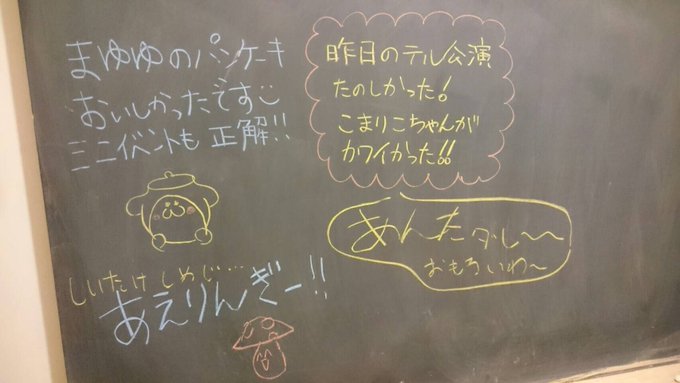 まゆゆのパンケーキ
おいしかったですじ
ミニイベントも正解!!
昨日のテル公演
たのしかった!
こまりこちゃんが
カワイかった!!
あんたダレ〜〜
おもろいわ〜
しいたけ しめじ...
あえりんぎー!!